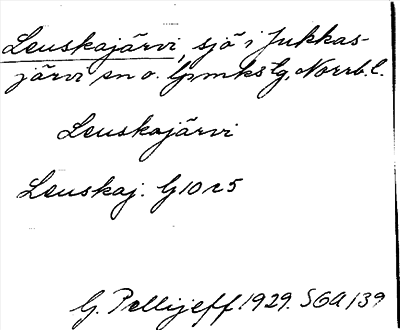 Leuskajärvi, sjö i Jukkas-
järvi sn o. lpmkstg, Norrb. l.
Leuskajärvi
Leuskaj. G 10 r 5
G. Pellijeff 1929. SOA 139